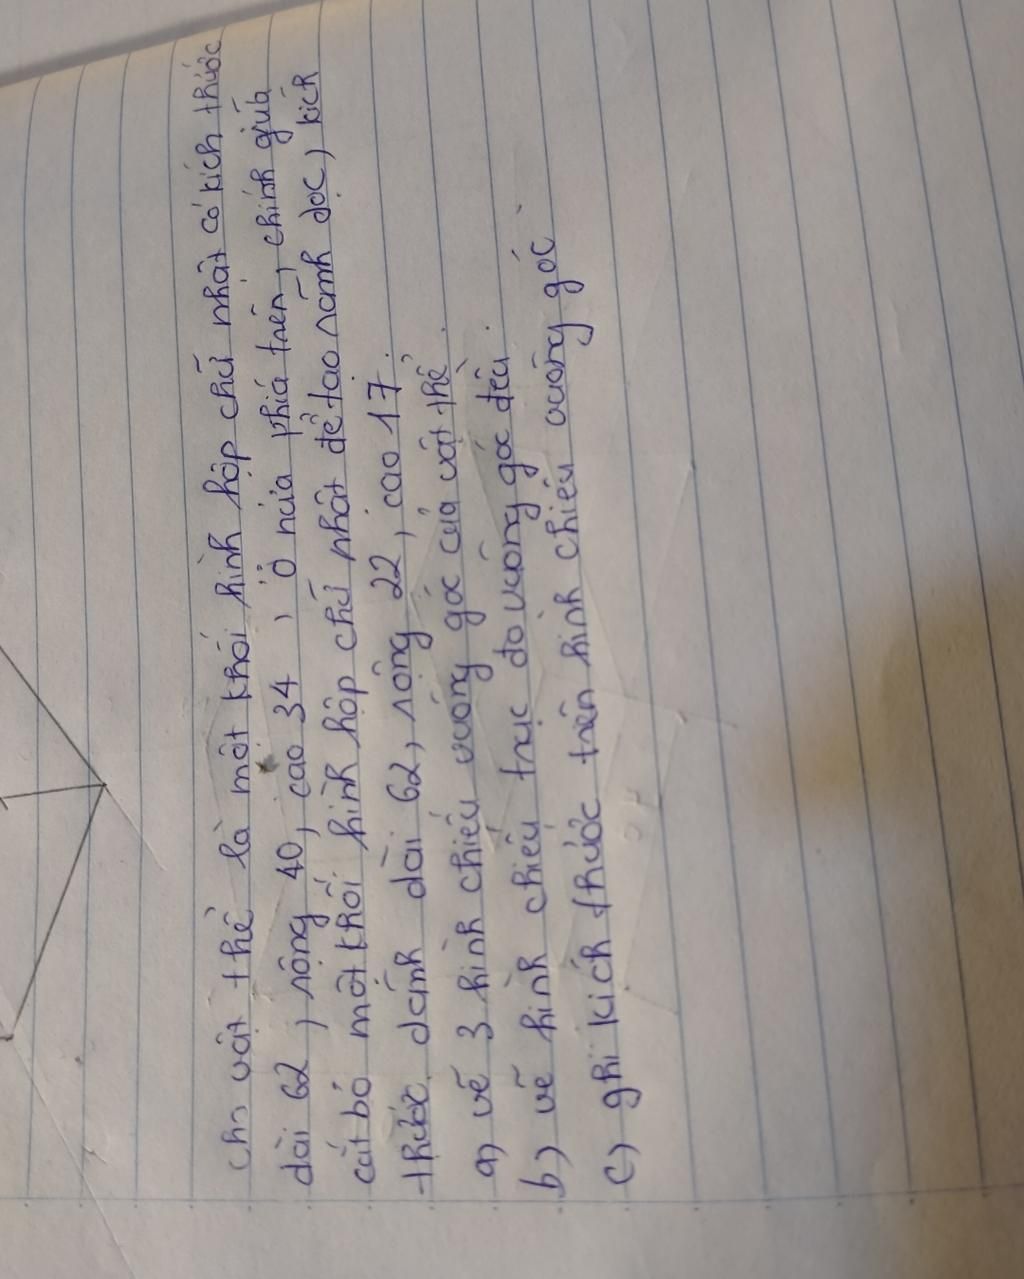 cho vật thể là một khối hình hộp chữ nhật có kích thước
dài 62, rộng 40, cao 34, ở nửa phía trên, chính giữa
cắt bỏ một khối hình hộp chữ nhật để tạo rãnh dọc) kích
thước rãnh dài 62, rộng 22, cao 17.
a) vẽ 3 hình chiếu vuông góc của vật thể.
b) vẽ hình chiếu trục đo vuông góc đều.
c) ghi kích thước trên hình chiếu vuông góc